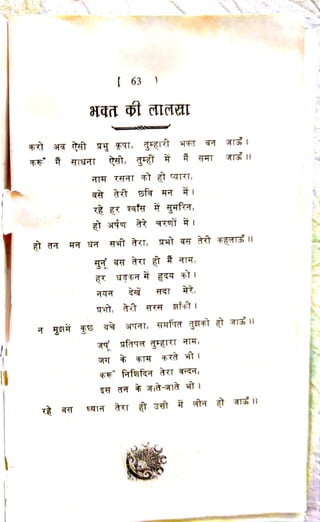 [ 63 ]
भक्त की लालसा
करो अब ऐसी प्रभु कृपा, तुम्हारी भक्त बन जाऊँ।
करूँ मैं साधना ऐसी, तुम्हीं में मैं समा जाऊँ॥
नाम रसना को हो प्यारा,
बसे तेरी छवि मन में।
रहे हर श्वाँस में सुमरिन,
हो अर्पण तेरे चरणों में।
हो तन मन धन सभी तेरा, प्रभो बस तेरी कहलाऊँ॥
सुनूँ बस तेरा ही मैं नाम,
हर धड़कन में हृदय की।
नयन देखें सदा मेरे,
प्रभो, तेरी सरस झाँकी।
न मुझमें कुछ बचे अपना, समर्पित तुझको हो जाऊँ॥
जपूँ प्रतिपल तुम्हारा नाम,
जग के काम करते भी।
करूँ निशिदिन तेरा वन्दन,
इस तन के जाते-जाते भी।
रहे बस ध्यान तेरा ही उसी में लीन हो जाऊँ॥